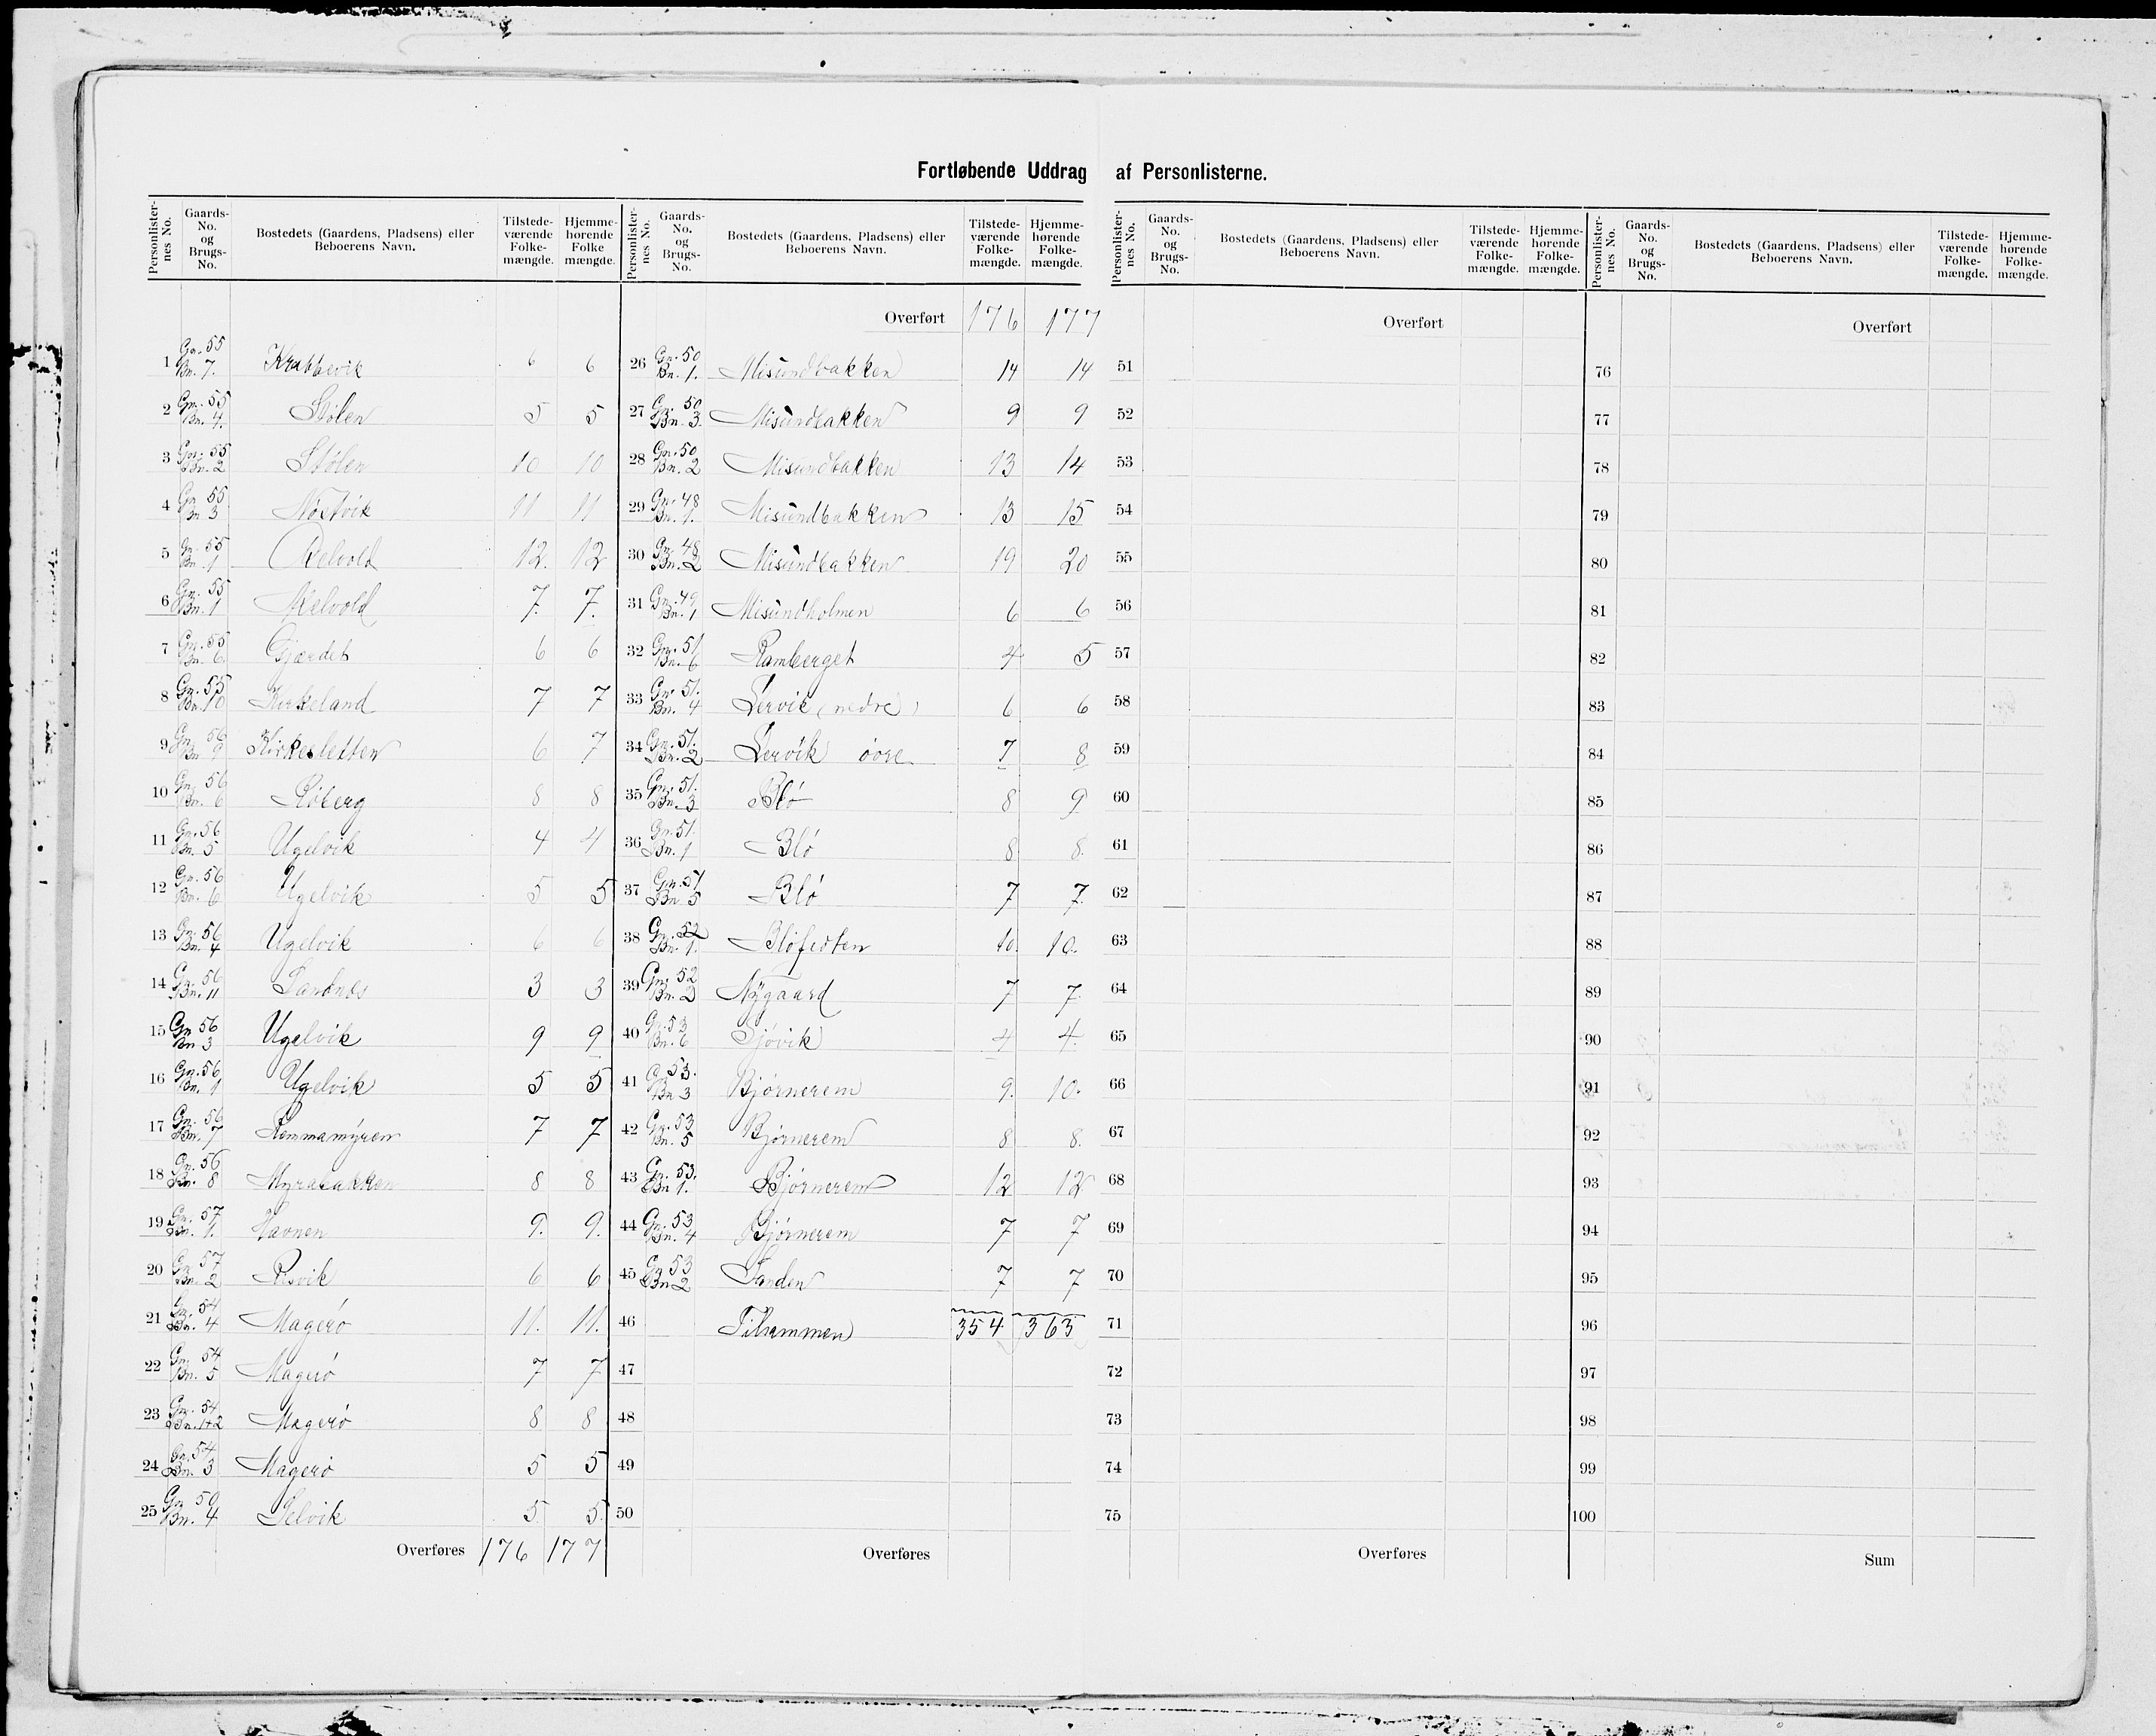 Fortløbende Uddrag af Personlisterne.
Personlister-nes No. Gaards-No. og Brugs-No. Bostedets (Gaardens, Pladsens) eller Beboerens Navn. Tilstede-værende Folke-mængde. Hjemme-hørende Folke mængde.
1 Gn. 55 Bn. 7. Krabbevik 6 6
2 Gn. 55 Bn. 4. Stølen 5 5
3 Gn. 55 Bn. 2 Stølen 10 10
4 Gn 55 Bn 3 Nøstvik 11 11
5 Gn. 55 Bn. 1 Melvold 12. 12
6 Gn. 55 Bn. 1 Melvold 7. 7.
7 Gn. 55 Bn. 6. Gjærdet 6 6
8 Gn. 55 Bn. 10 Kirkeland 7 7
9 Gn. 56 Bn 9 Kirkesletten 6 7
10 Gn. 56 Bn. 6 Røberg 8 8
11 Gn. 56 Bn. 5 Ugelvik 4 4
12 Gn. 56 Bn. 6 Ugelvik 5 5
13 Gn. 56 Bn. 4 Ugelvik 6 6
14 Gn. 56 Bn. 11 Sandnes 3 3
15 Gn 56 Bn 3 Ugelvik 9 9
16 Gn. 56 Bn. 1 Ugelvik 5 5
17 Gn. 56 Bn. 7 Remmamyren 7 7
18 Gn. 56 Bn. 8 Myrabakken 8 8
19 Gn. 57 Bn. 1. Havnen 9. 9.
20 Gn 57 Bn. 2 Risvik 6 6
21 Gn. 54 Bn. 4 Magerø 11. 11.
22 Gn. 54 Bn. 5 Magerø 7 7
23 Gn. 54 Bn. 1+2 Magerø 8 8
24 Gn. 54 Bn. 3 Magerø 5 5
25 Gn 50 Bn. 4 Selvik 5. 5.
Overføres 176 177
Personlister-nes No. Gaards-No. og Brugs-No. Bostedets (Gaardens, Pladsens) eller Beboerens Navn. Tilstede-værende Folke-mængde. Hjemme-hørende Folke-mængde.
Overført 176 177
26 Gn. 50 Bn. 1. Misundbakken 14 14
27 Gn. 50 Bn. 3. Misundbakken 9 9
28 Gn. 50 Bn. 2 Misundbakken 13 14
29 Gn. 48 Bn. 1. Misundbakken 13 15
30 Gn. 48 Bn. 2 Misundbakken 19 20
31 Gn. 49 Bn. 1 Misundholmen 6 6
32 Gn. 51 Bn. 6 Ramberget 4 5
33 Gn. 51. Bn. 4 Lervik (nedre) 6 6
34 Gn. 51. Bn. 2 Lervik øvre 7 8
35 Gn. 51. Bn. 3 Blø 8 9
36 Gn. 51. Bn. 1 Blø 8 8.
37 Gn. 51 Bn 5 Blø 7 7
38 Gn. 52 Bn 1. Bløfedten 10. 10.
39 Gn. 52 Bn. 2 Nygaard 7 7.
40 Gn. 53 Bn. 6 Sjøvik 4 4.
41 G 53. Bn 3 Bjørnerem 9. 10.
42 Gn. 53 Bn. 5 Bjørnerem 8 8.
43 Gn. 53. Bn 1. Bjørnerem 12 12
44 Gn. 53 Bn. 4 Bjørnerem 7 7
45 Gn 53 Bn 2 Sanden 7 7
46 Tilsammen 354 363
47
48
49
50
Overføres
Personlister-nes No. Gaards-No. og Brugs-No. Bostedets (Gaardens, Pladsens) eller Beboerens Navn. Tilstede-værende Folke-mængde. Hjemme-hørende Folke-mængde.
Overført
51
52
53
54
55
56
57
58
59
60
61
62
63
64
65
66
67
68
69
70
71
72
73
74
75
Overføres
Personlister-nes No. Gaards-No. og Brugs-No. Bostedets (Gaardens, Pladsens) eller Beboerens Navn. Tilstede-værende Folke-mængde. Hjemme-hørende Folke-mængde.
Overført
76
77
78
79
80
81
82
83
84
85
86
87
88
89
90
91
92
93
94
95
96
97
98
99
100
Sum